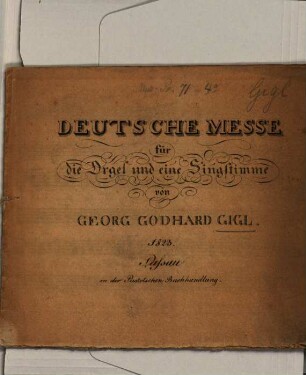 71
Gigl
DEUTSCHE MESSE
für
die Orgel und eine Singstimme
von
GEORG GODHARD GIGL.
1823.
Passau
in der Pustetschen Buchhandlung.